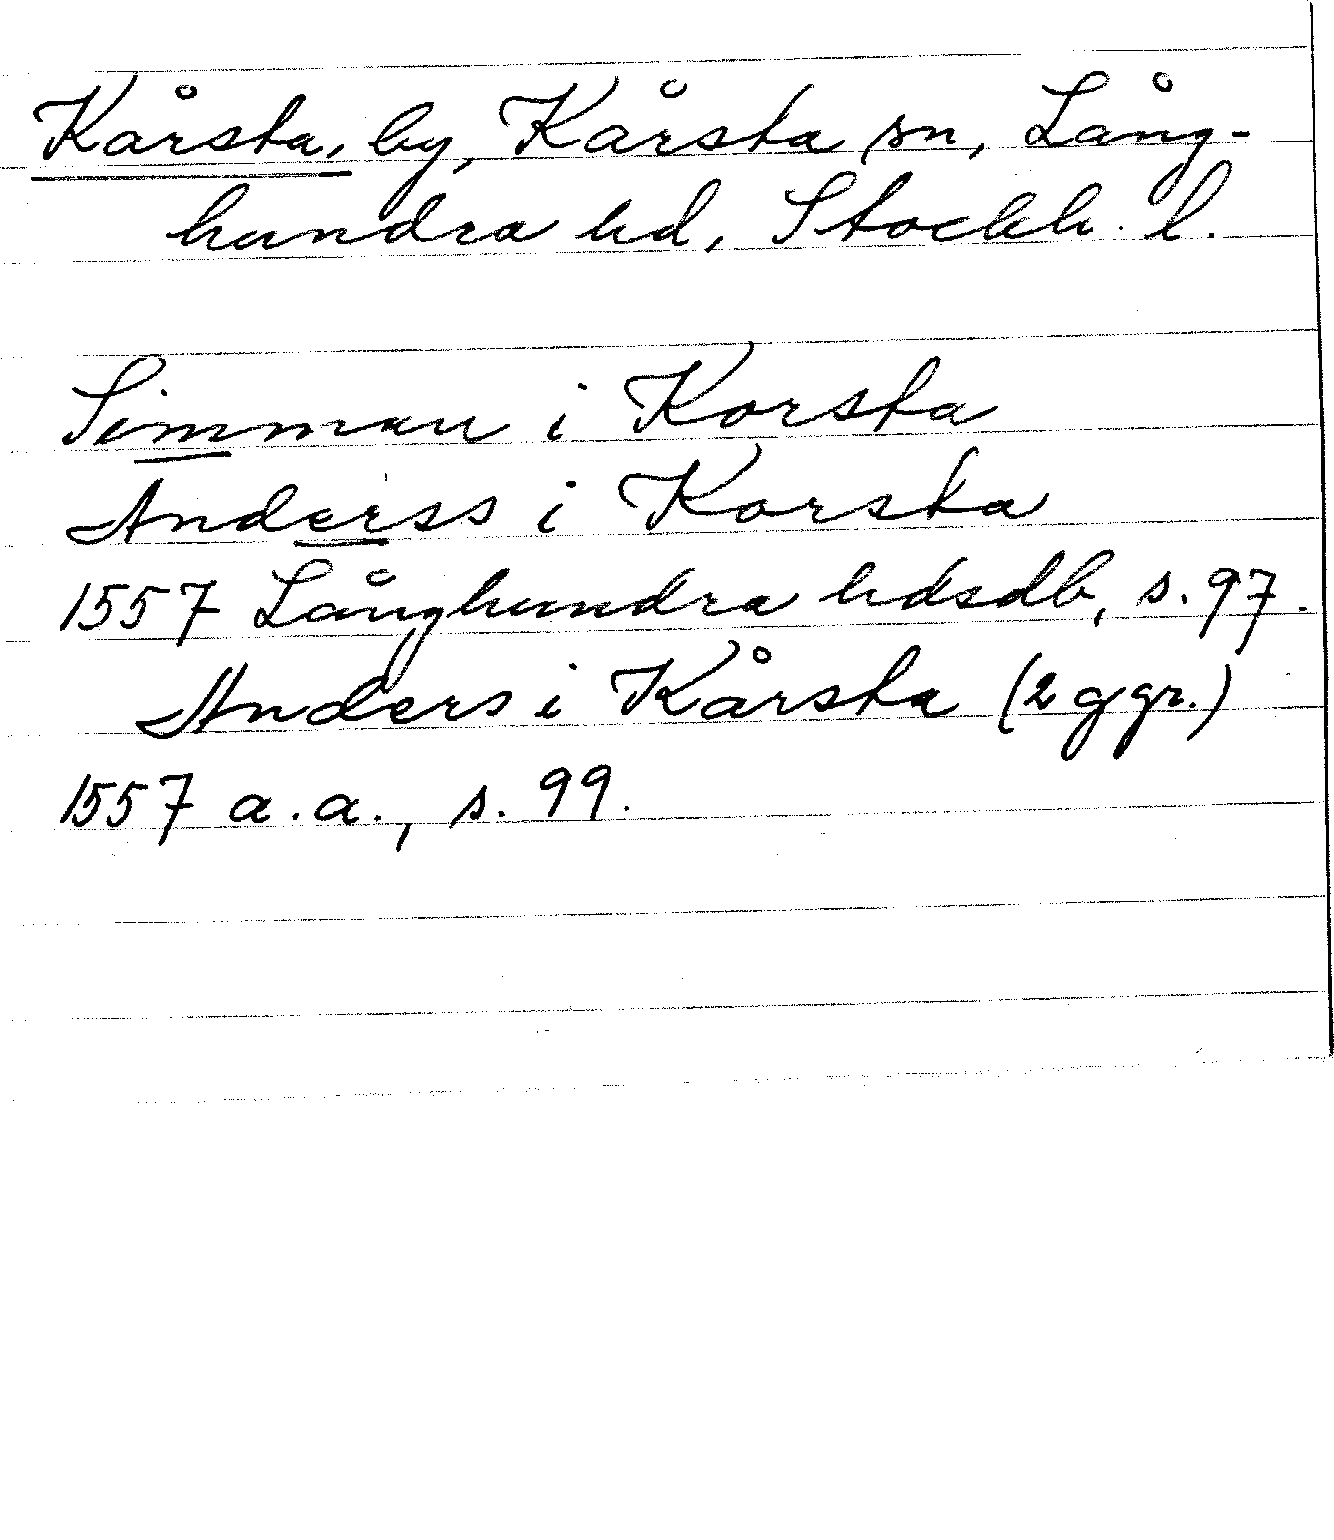 Kårsta, by, Kårsta sn, Lång-
hundra hd, Stockh. l.
Simmon i Korsta
Anderss i Korsta
1557 Långhundra hdsdb, s. 97.
Anders i Kårsta (2 ggr.)
1557 a.a., s. 99.